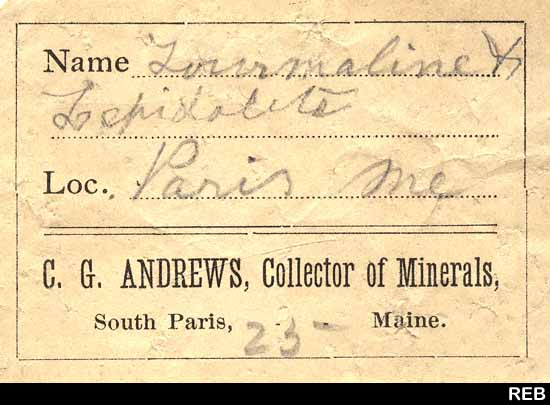 Name Tourmaline &
Lepidolite
Loc. Paris Me
C. G. ANDREWS, Collector of Minerals,
South Paris, 25- Maine.
REB